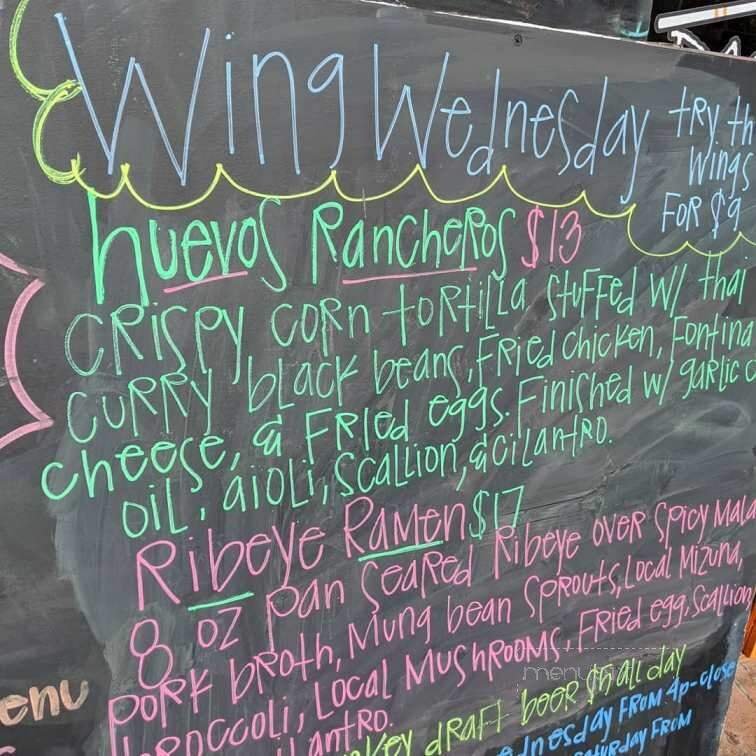 Wing Wednesday
try th
wings
FOR $9
huevos Rancheros $13
CRispy coRn toRtilla stuffed w/ thai
cuRRy black beans, Fried chicken, Fontina
cheese, & FRied eggs. Finished w/ gaRlic c
oil, aioli, scallion, & cilantRo.
Ribeye Ramen $17
8 oz pan seaRed Ribeye oveR spicy Mala
poRk bRoth, Mung bean spRouts, Local Mizuna,
bRoccoli, Local MushRooms, FRied egg, Scallion
ilantRo.
key draft beer $ all day
ednesday FRoM 4p-close
atuRday FRoM
enu
menu